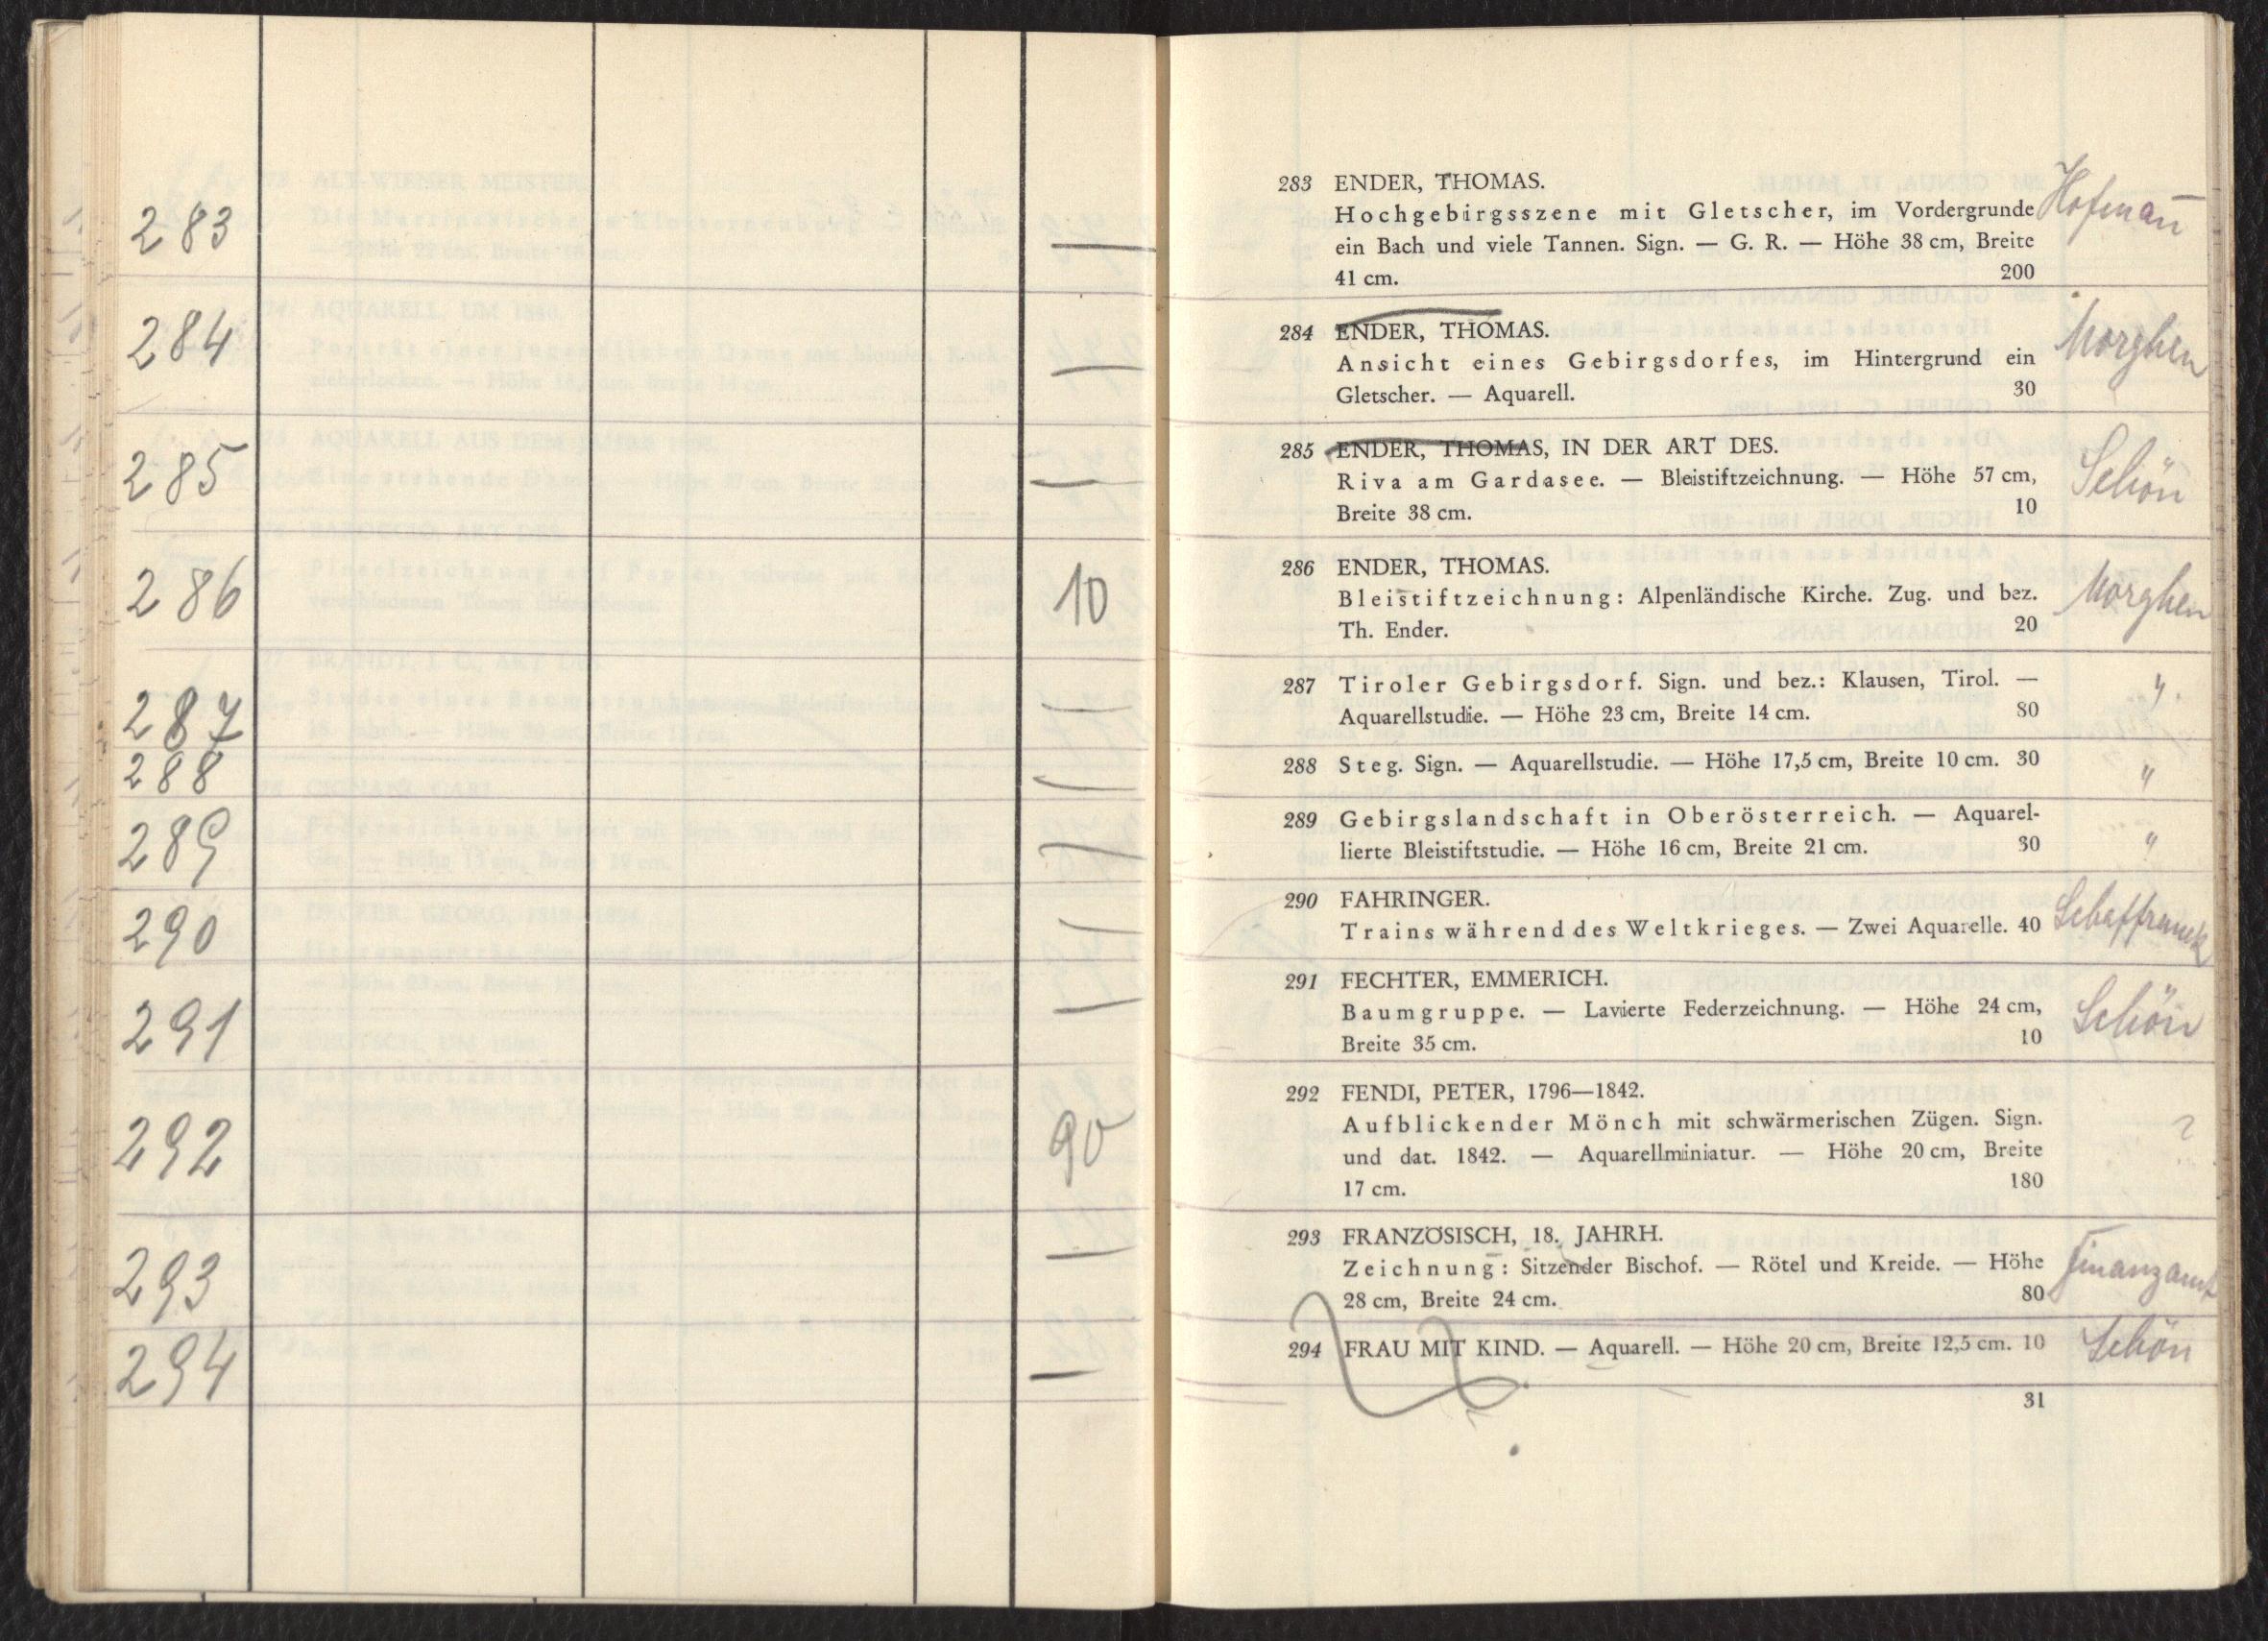 283 —
284 —
285 —
286 10
287 —
288 —
289 —
290 —
291 —
292 90
293 —
294 —
283 ENDER, THOMAS. Hofmañ
Hochgebirgsszene mit Gletscher, im Vordergrunde
ein Bach und viele Tannen. Sign. — G. R. — Höhe 38 cm, Breite
41 cm. 200
284 ENDER, THOMAS. Morghen
Ansicht eines Gebirgsdorfes, im Hintergrund ein
Gletscher. — Aquarell. 30
285 ENDER, THOMAS, IN DER ART DES. Schön
Riva am Gardasee. — Bleistiftzeichnung. — Höhe 57 cm,
Breite 38 cm. 10
286 ENDER, THOMAS. Morghen
Bleistiftzeichnung: Alpenländische Kirche. Zug. und bez.
Th. Ender. 20
287 Tiroler Gebirgsdorf. Sign. und bez.: Klausen, Tirol. — "
Aquarellstudie. — Höhe 23 cm, Breite 14 cm. 80
288 Steg. Sign. — Aquarellstudie. — Höhe 17,5 cm, Breite 10 cm. 30 "
289 Gebirgslandschaft in Oberösterreich. — Aquarel-
lierte Bleistiftstudie. — Höhe 16 cm, Breite 21 cm. 30 "
290 FAHRINGER. Schaffranek
Trains während des Weltkrieges. — Zwei Aquarelle. 40
291 FECHTER, EMMERICH. Schön
Baumgruppe. — Lavierte Federzeichnung. — Höhe 24 cm,
Breite 35 cm. 10
292 FENDI, PETER, 1796—1842.
Aufblickender Mönch mit schwärmerischen Zügen. Sign. ?
und dat. 1842. — Aquarellminiatur. — Höhe 20 cm, Breite
17 cm. 180
293 FRANZÖSISCH, 18. JAHRH.
Zeichnung: Sitzender Bischof. — Rötel und Kreide. — Höhe Finanzamt
28 cm, Breite 24 cm. 80
294 FRAU MIT KIND. — Aquarell. — Höhe 20 cm, Breite 12,5 cm. 10 Schön
31